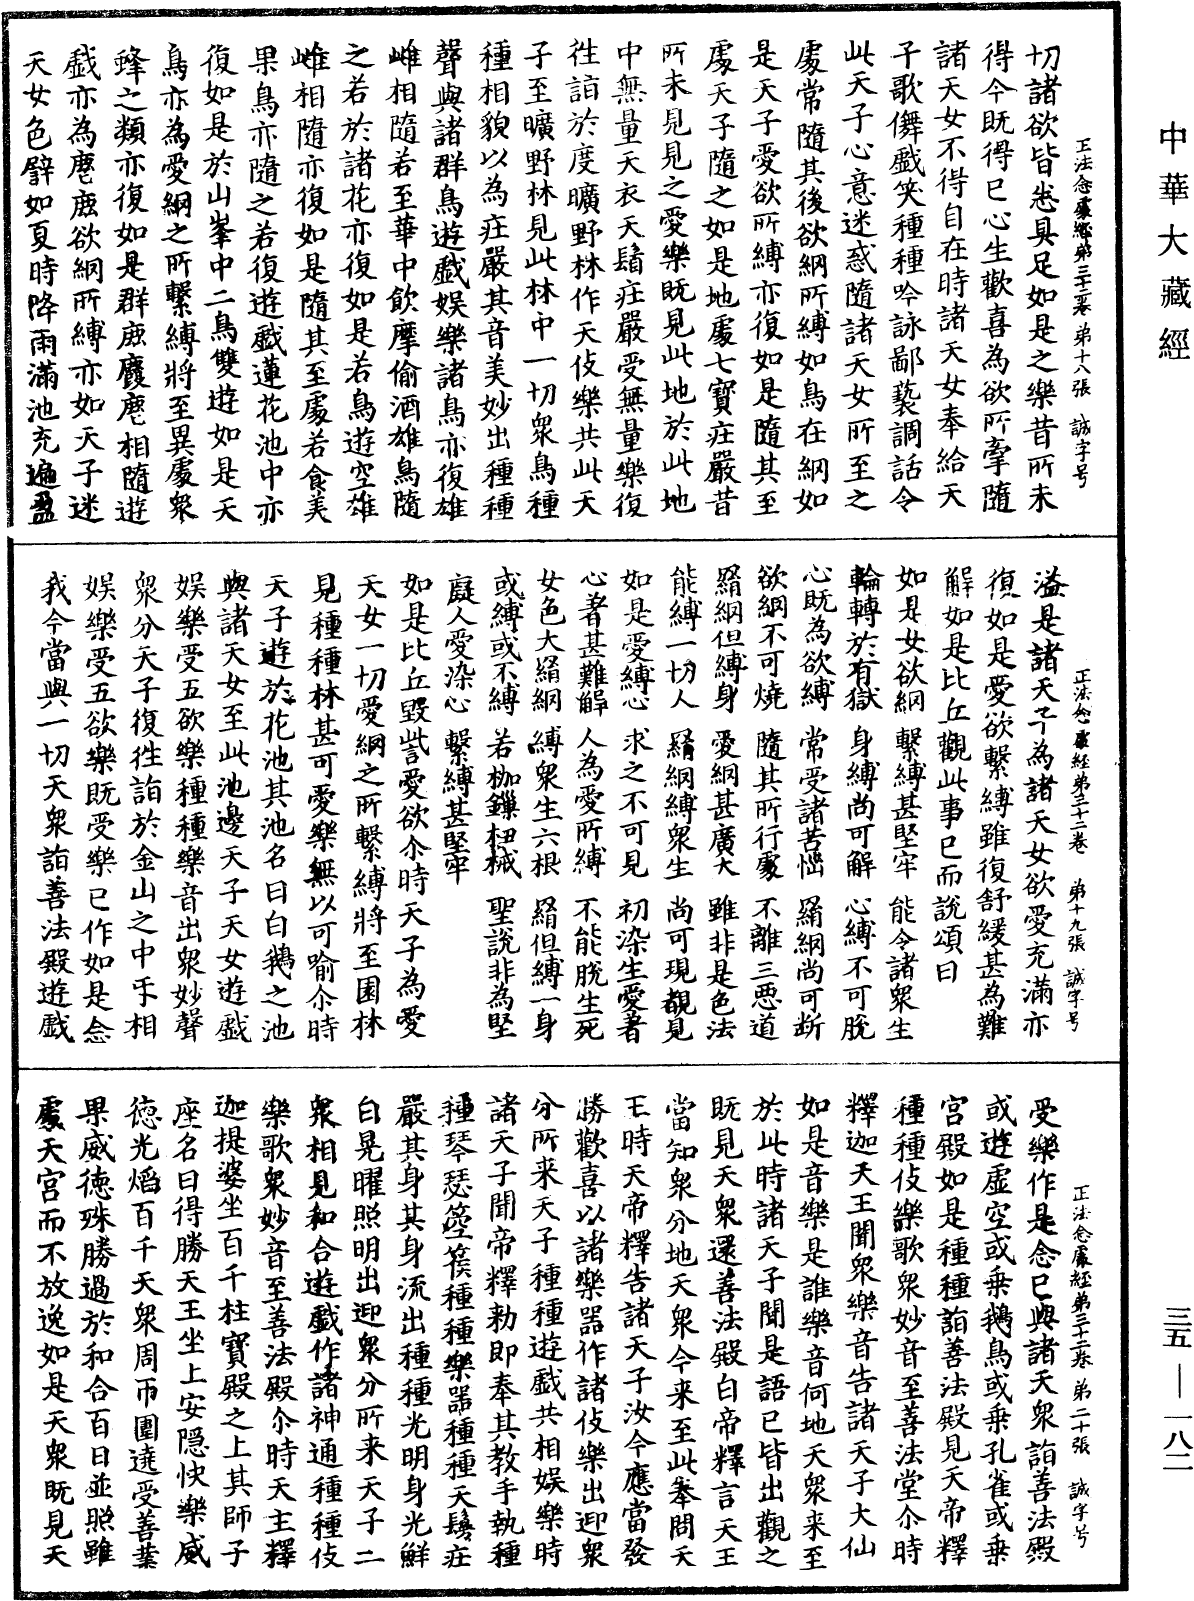 中華大藏經
正法念處經第三十二卷 第十八張 誠字号
切諸欲皆悉具足如是之樂昔所未
得今既得已心生歡喜為欲所牽隨
諸天女不得自在時諸天女奉給天
子歌儛戲笑種種吟詠鄙褻調話令
此天子心意迷惑隨諸天女所至之
處常隨其後欲網所縛如鳥在網如
是天子愛欲所縛亦復如是隨其至
處天子隨之如是地處七寶莊嚴昔
所未見見之愛樂既見此地於此地
中無量天衣天鬘莊嚴受無量樂復
往詣於度曠野林作天伎樂共此天
子至曠野林見此林中一切眾鳥種
種相貌以為莊嚴其音美妙出種種
聲與諸群鳥遊戲娛樂諸鳥亦復雄
雌相隨若至華中飲摩偷酒雄鳥隨
之若於諸花亦復如是若鳥遊空雄
雌相隨亦復如是隨其至處若食美
果鳥亦隨之若復遊戲蓮花池中亦
復如是於山峯中二鳥雙遊如是天
鳥亦為愛網之所繫縛將至異處眾
蜂之類亦復如是群鹿麌麀相隨遊
戲亦為麀鹿欲網所縛亦如天子迷
天女色譬如夏時降雨滿池充遍盈
正法念處經第三十二卷 第十九張 誠字号
溢是諸天子為諸天女欲愛充滿亦
復如是愛欲繫縛雖復舒緩甚為難
解如是比丘觀此事已而說頌曰
如是女欲網 繫縛甚堅牢 能令諸眾生
輪轉於有獄 身縛尚可解 心縛不可脫
心既為欲縛 常受諸苦惱 羂網尚可斷
欲網不可燒 隨其所行處 不離三惡道
羂網但縛身 愛網甚廣大 雖非是色法
能縛一切人 羂網縛眾生 尚可現覩見
如是愛縛心 求之不可見 初染生愛著
心著甚難解 人為愛所縛 不能脫生死
女色大羂網 縛眾生六根 羂但縛一身
或縛或不縛 若枷鏁杻械 聖說非為堅
庭人愛染心 繫縛甚堅牢
如是比丘毀訾愛欲尒時天子為愛
天女一切愛網之所繫縛將至園林
見種種林甚可愛樂無以可喻尒時
天子遊於花池其池名曰白鵝之池
與諸天女至此池邊天子天女遊戲
娛樂受五欲樂種種樂音出眾妙聲
眾分天子復往詣於金山之中手相
娛樂受五欲樂既受樂已作如是念
我今當與一切天眾詣善法殿遊戲
正法念處經第三十二卷 第二十張 誠字号
受樂作是念已與諸天眾詣善法殿
或遊虛空或乘鵝鳥或乘孔雀或乘
宮殿如是種種詣善法殿見天帝釋
種種伎樂歌眾妙音至善法堂尒時
釋迦天王聞眾樂音告諸天子大仙
如是音樂是誰樂音何地天眾來至
於此時諸天子聞是語已皆出觀之
既見天眾還善法殿白帝釋言天王
當知眾分地天眾今来至此奉問天
王時天帝釋告諸天子汝今應當發
勝歡喜以諸樂器作諸伎樂出迎眾
分所来天子種種遊戲共相娛樂時
諸天子聞帝釋勑即奉其教手執種
種琴瑟箜篌種種樂器種種天鬘莊
嚴其身其身流出種種光明身光鮮
白晃曜照明出迎眾分所来天子二
眾相見和合遊戲作諸神通種種伎
樂歌眾妙音至善法殿尒時天主釋
迦提婆坐百千柱寶殿之上其師子
座名曰得勝天王坐上安隱快樂威
德光熖百千天眾周帀圍遶受善業
果威德殊勝過於和合百日並照雖
處天宮而不放逸如是天眾既見天
三五—一八二